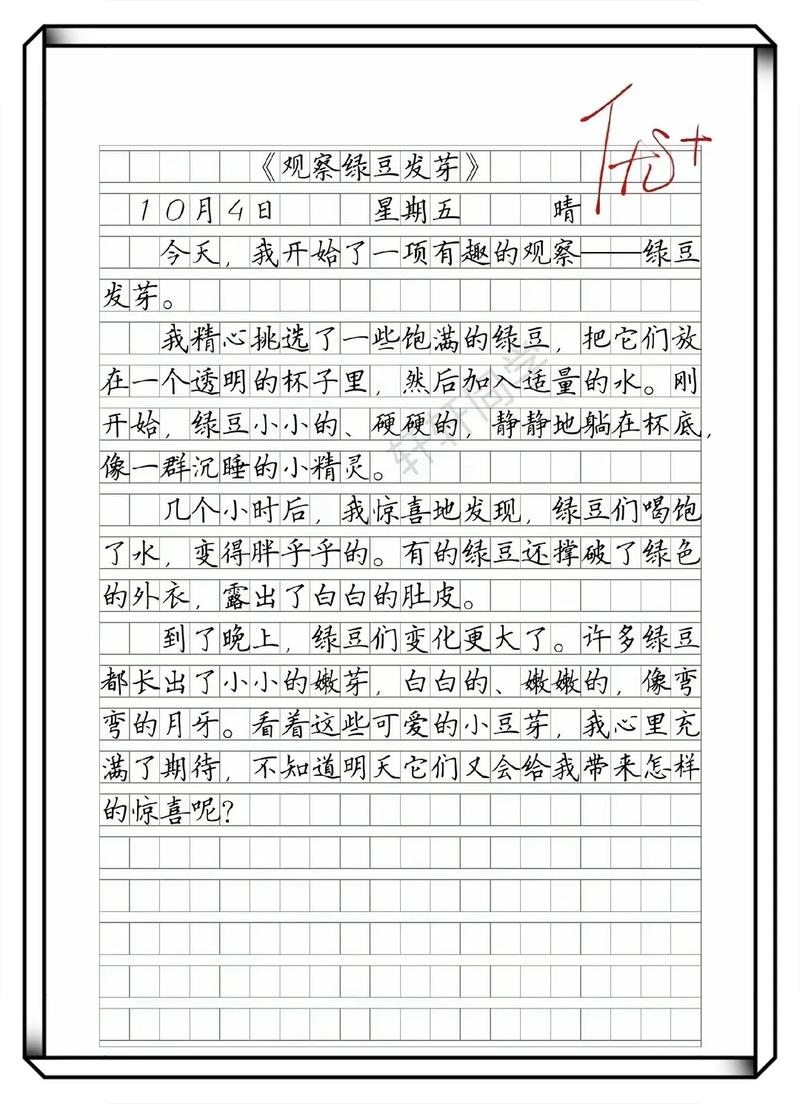 《观察绿豆发芽》
10月4日 星期五 晴
今天，我开始了一项有趣的观察——绿豆
发芽。
我精心挑选了一些饱满的绿豆，把它们放
在一个透明的杯子里，然后加入适量的水。刚
开始，绿豆小小的、硬硬的，静静地躺在杯底，
像一群沉睡的小精灵。
几个小时后，我惊喜地发现，绿豆们喝饱
了水，变得胖乎乎的。有的绿豆还撑破了绿色
的外衣，露出了白白的肚皮。
到了晚上，绿豆们变化更大了。许多绿豆
都长出了小小的嫩芽，白白的、嫩嫩的，像弯
弯的月牙。看着这些可爱的小豆芽，我心里充
满了期待，不知道明天它们又会给我带来怎样
的惊喜呢？